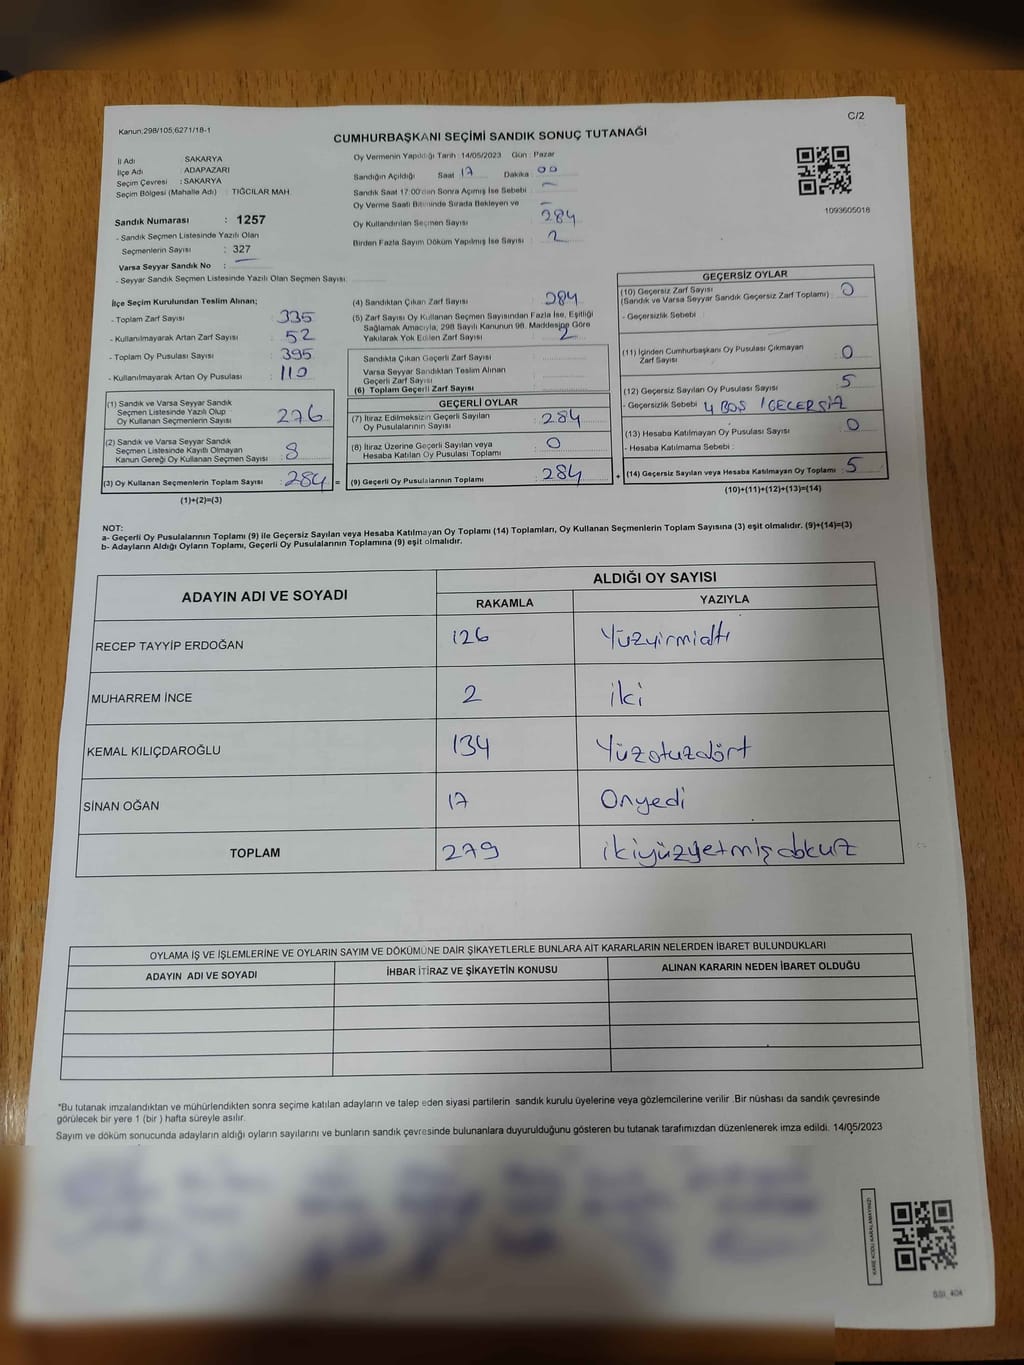 Kanun,298/105,6271/18-1
C/2
CUMHURBAŞKANI SEÇİMİ SANDIK SONUÇ TUTANAĞI
İl Adı : SAKARYA
İlçe Adı : ADAPAZARI
Seçim Çevresi : SAKARYA
Seçim Bölgesi (Mahalle Adı) : TIĞCILAR MAH.
Sandık Numarası : 1257
- Sandık Seçmen Listesinde Yazılı Olan
Seçmenlerin Sayısı : 327
Varsa Seyyar Sandık No : –
- Seyyar Sandık Seçmen Listesinde Yazılı Olan Seçmen Sayısı:
Oy Vermenin Yapıldığı Tarih : 14/05/2023 Gün : Pazar
Sandığın Açıldığı Saat 17 Dakika : 00
Sandık Saat 17:00'den Sonra Açımış İse Sebebi : –
Oy Verme Saati Bitiminde Sırada Bekleyen ve –
Oy Kullandırılan Seçmen Sayısı : 284
Birden Fazla Sayım Döküm Yapılmış İse Sayısı : 2
1093605018
İlçe Seçim Kurulundan Teslim Alınan;
- Toplam Zarf Sayısı : 335
- Kullanılmayarak Artan Zarf Sayısı : 52
- Toplam Oy Pusulası Sayısı : 395
- Kullanılmayarak Artan Oy Pusulası : 110
(1) Sandık ve Varsa Seyyar Sandık
Seçmen Listesinde Yazılı Olup
Oy Kullanan Seçmenlerin Sayısı : 276
(2) Sandık ve Varsa Seyyar Sandık
Seçmen Listesinde Kayıtlı Olmayan
Kanun Gereği Oy Kullanan Seçmen Sayısı : 8
(3) Oy Kullanan Seçmenlerin Toplam Sayısı : 284 =
(1)+(2)=(3)
(4) Sandıktan Çıkan Zarf Sayısı : 284
(5) Zarf Sayısı Oy Kullanan Seçmen Sayısından Fazla İse, Eşitliği
Sağlamak Amacıyla, 298 Sayılı Kanunun 98. Maddesine Göre
Yakılarak Yok Edilen Zarf Sayısı : 2
Sandıkta Çıkan Geçerli Zarf Sayısı :
Varsa Seyyar Sandıktan Teslim Alınan
Geçerli Zarf Sayısı :
(6) Toplam Geçerli Zarf Sayısı :
GEÇERLİ OYLAR
(7) İtiraz Edilmeksizin Geçerli Sayılan
Oy Pusulalarının Sayısı : 284
(8) İtiraz Üzerine Geçerli Sayılan veya
Hesaba Katılan Oy Pusulası Toplamı : 0
(9) Geçerli Oy Pusulalarının Toplamı : 284 +
GEÇERSİZ OYLAR
(10) Geçersiz Zarf Sayısı
(Sandık ve Varsa Seyyar Sandık Geçersiz Zarf Toplamı) : 0
- Geçersizlik Sebebi :
(11) İçinden Cumhurbaşkanı Oy Pusulası Çıkmayan
Zarf Sayısı : 0
(12) Geçersiz Sayılan Oy Pusulası Sayısı : 5
- Geçersizlik Sebebi 4 BOŞ 1 GEÇERSİZ
(13) Hesaba Katılmayan Oy Pusulası Sayısı : 0
- Hesaba Katılmama Sebebi :
(14) Geçersiz Sayılan veya Hesaba Katılmayan Oy Toplamı : 5
(10)+(11)+(12)+(13)=(14)
NOT:
a- Geçerli Oy Pusulalarının Toplamı (9) ile Geçersiz Sayılan veya Hesaba Katılmayan Oy Toplamı (14) Toplamları, Oy Kullanan Seçmenlerin Toplam Sayısına (3) eşit olmalıdır. (9)+(14)=(3)
b- Adayların Aldığı Oyların Toplamı, Geçerli Oy Pusulalarının Toplamına (9) eşit olmalıdır.
ADAYIN ADI VE SOYADI
ALDIĞI OY SAYISI
RAKAMLA YAZIYLA
RECEP TAYYİP ERDOĞAN 126 Yüzyirmialtı
MUHARREM İNCE 2 iki
KEMAL KILIÇDAROĞLU 134 Yüzotuzdört
SİNAN OĞAN 17 Onyedi
TOPLAM 279 ikiyüzyetmişdokuz
OYLAMA İŞ VE İŞLEMLERİNE VE OYLARIN SAYIM VE DÖKÜMÜNE DAİR ŞİKAYETLERLE BUNLARA AİT KARARLARIN NELERDEN İBARET BULUNDUKLARI
ADAYIN ADI VE SOYADI İHBAR İTİRAZ VE ŞİKAYETİN KONUSU ALINAN KARARIN NEDEN İBARET OLDUĞU
*Bu tutanak imzalandıktan ve mühürlendikten sonra seçime katılan adayların ve talep eden siyasi partilerin sandık kurulu üyelerine veya gözlemcilerine verilir .Bir nüshası da sandık çevresinde
görülecek bir yere 1 (bir ) hafta süreyle asılır.
Sayım ve döküm sonucunda adayların aldığı oyların sayılarını ve bunların sandık çevresinde bulunanlara duyurulduğunu gösteren bu tutanak tarafımızdan düzenlenerek imza edildi. 14/05/2023
KARE KODU KARALAMAYINIZ!
SSI_404